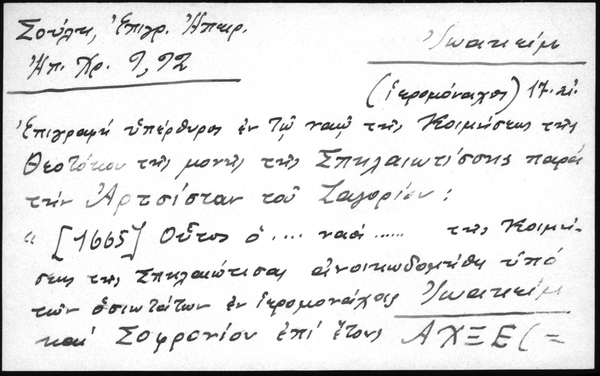 Σούλη, Ἐπιγρ. Ἠπειρ.
Ἠπ. Χρ. 9, 92
Ἰωακείμ
(ἱερομόναχος) 17. αἰ.
Ἐπιγραφή ὑπέρθυρος ἐν τῷ ναῷ τῆς Κοιμήσεως τῆς
Θεοτόκου τῆς μονῆς τῆς Σπηλαιωτίσσης παρά
τήν Ἀρτσίσταν τοῦ Ζαγορίου:
"[1665] Οὗτος ὁ .... ναός ...... τῆς Κοιμή-
σεως τῆς Σπηλαιώτισας ἀνοικωδομήθη ὑπό
τῶν ὁσιωτάτων ἐν ἱερομονάχοις Ἰωακείμ
καί Σοφρονίου ἐπί ἔτους ΑΧΞΕ (=